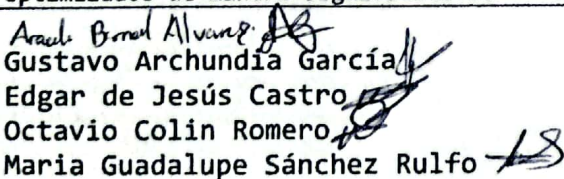 Bernal Alvarez
Gustavo Archundia García
Edgar de Jesús Castro
Octavio Colin Romero
Maria Guadalupe Sánchez Rulfo